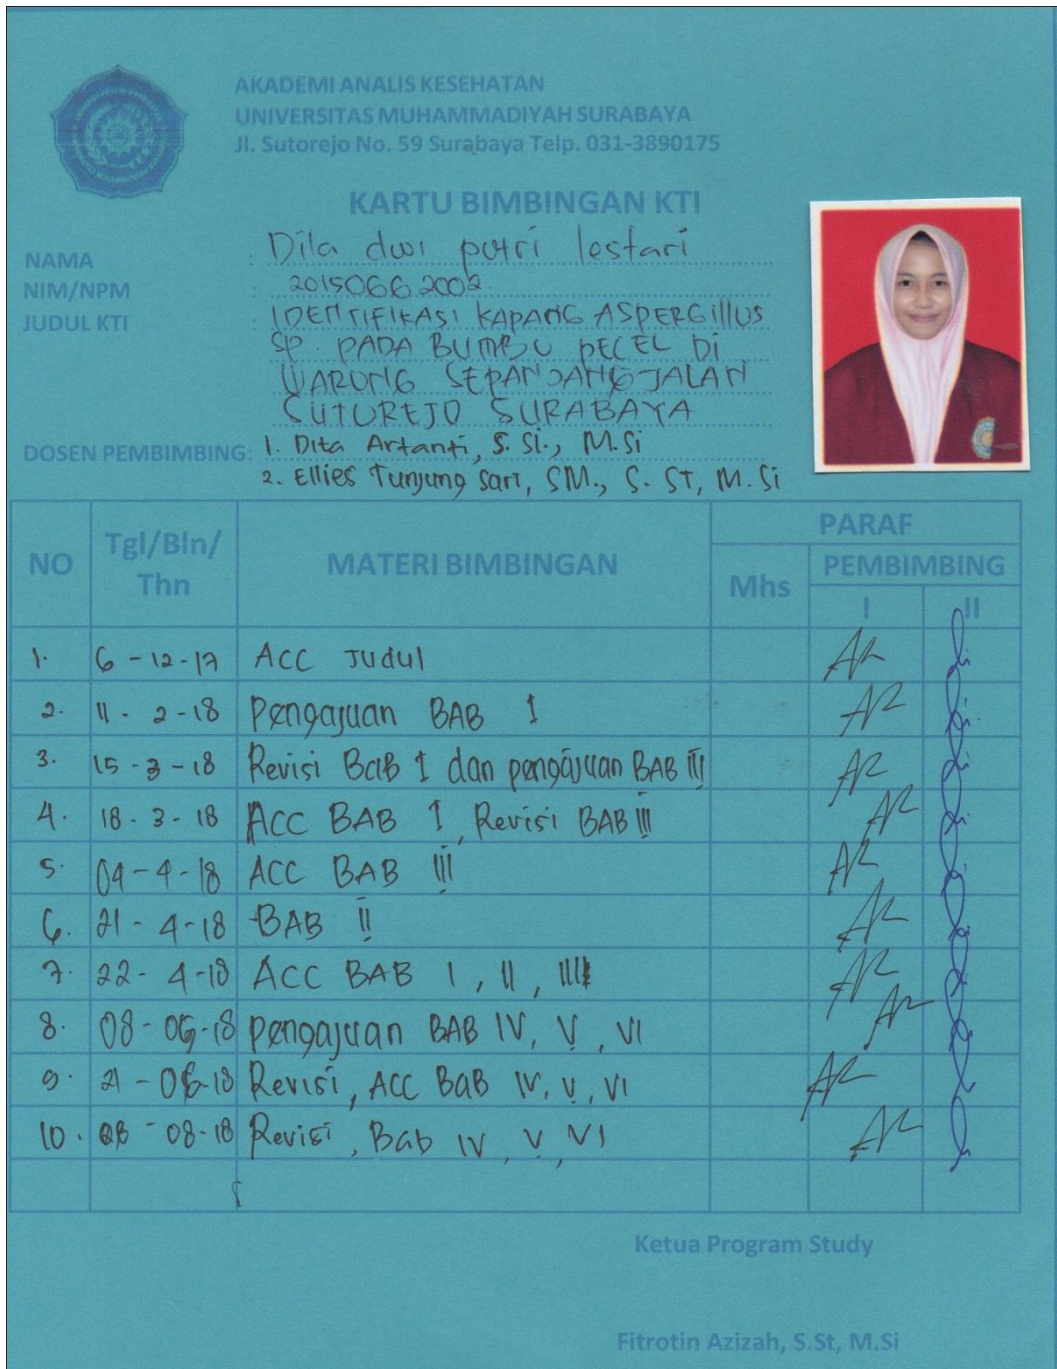 AKADEMI ANALIS KESEHATAN
UNIVERSITAS MUHAMMADIYAH SURABAYA
Jl. Sutorejo No. 59 Surabaya Telp. 031-3890175
KARTU BIMBINGAN KTI
NAMA : Dila dwi putri lestari
NIM/NPM : 20150662002
JUDUL KTI : IDENTIFIKASI KAPANG ASPERGIllUS
SP. PADA BUMBU PECEL Di
WARUNG SEPANJANG JALAN
SUTOREJO SURABAYA
DOSEN PEMBIMBING: 1. Dita Artanti, S. Si., M.Si
2. Ellies Tunjung Sari, SM., S. ST, M. Si
NO Tgl/Bln/Thn MATERI BIMBINGAN PARAF
Mhs PEMBIMBING
I II
1. 6 - 12 - 17 ACC Judul
2. 11 - 2 - 18 Pengajuan BAB I
3. 15 - 3 - 18 Revisi BaB I dan pengajuan BAB III
4. 18 - 3 - 18 ACC BAB I, Revisi BAB III
5. 04 - 4 - 18 ACC BAB III
6. 21 - 4 - 18 BAB II
7. 22 - 4 - 18 ACC BAB I, II, III
8. 08 - 18 pengajuan BAB IV, V, VI
9. 21 - 18 Revisi, ACC BaB IV, V, VI
10. 08 - 18 Revisi, Bab IV, V, VI
Ketua Program Study
Fitrotin Azizah, S.St, M.Si